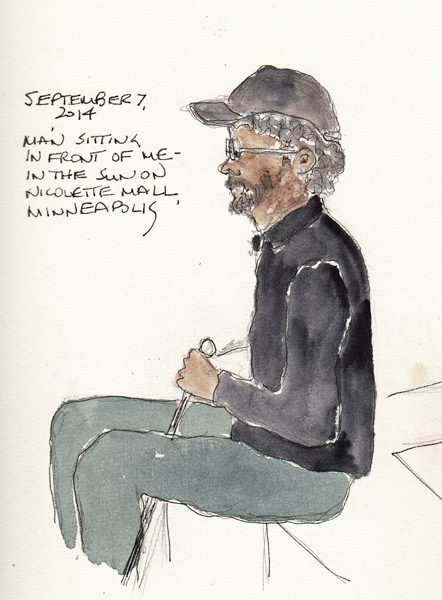 SEPTEMBER 7,
2014
MAN SITTING
IN FRONT OF ME-
IN THE SUN ON
NICOLETTE MALL
MINNEAPOLIS